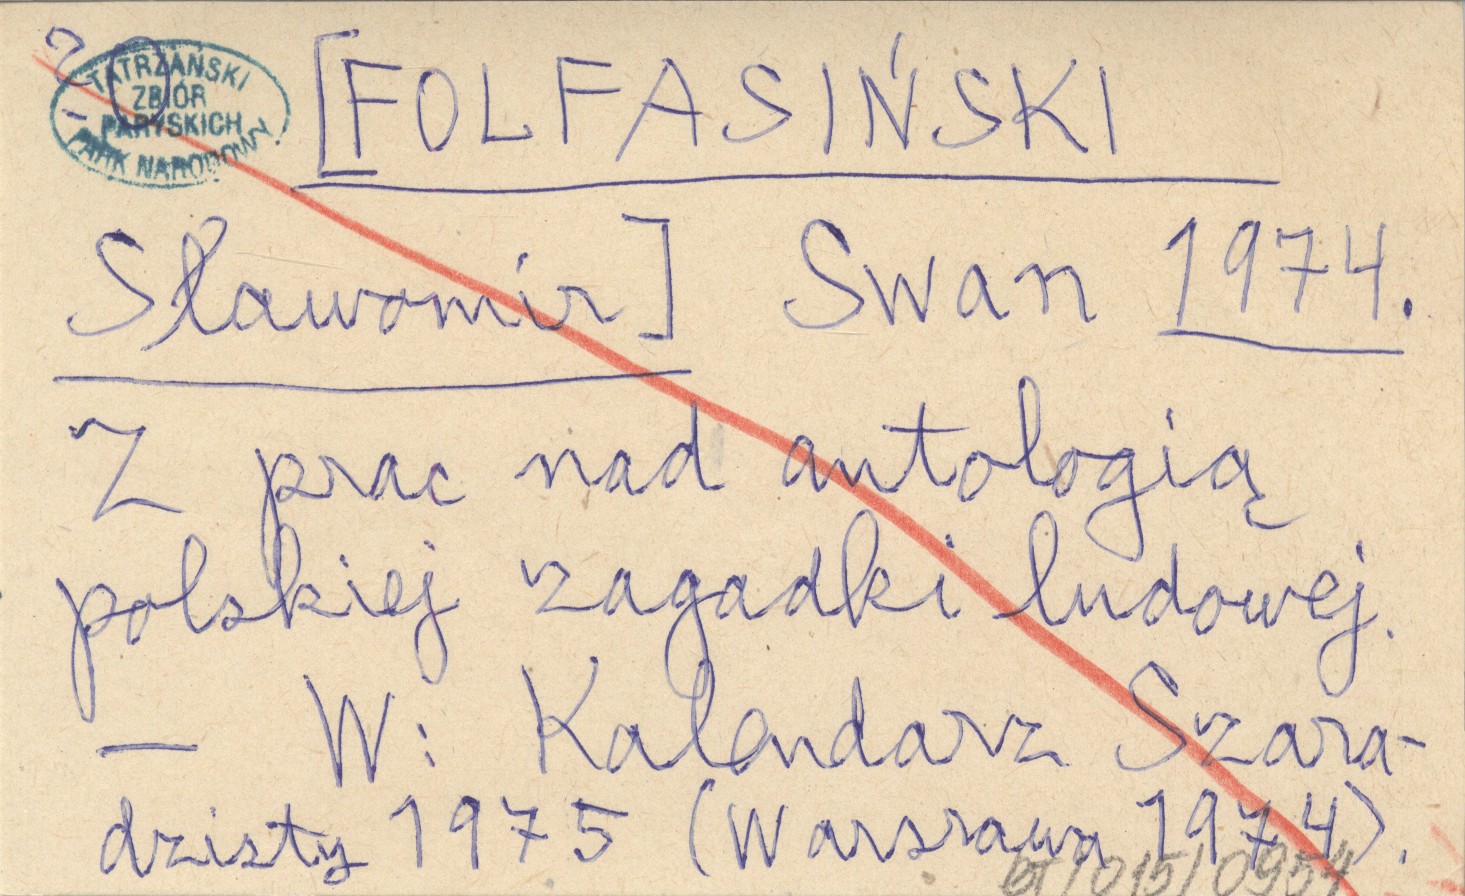 20
TATRZAŃSKI
ZBIÓR
PARYSKICH
PARK NARODOWY
[FOLFASIŃSKI
Sławomir] Swan 1974.
Z prac nad antologią
polskiej zagadki ludowej.
— W: Kalendarz Szara-
dzisty 1975 (Warszawa 1974).
bt/015/0954